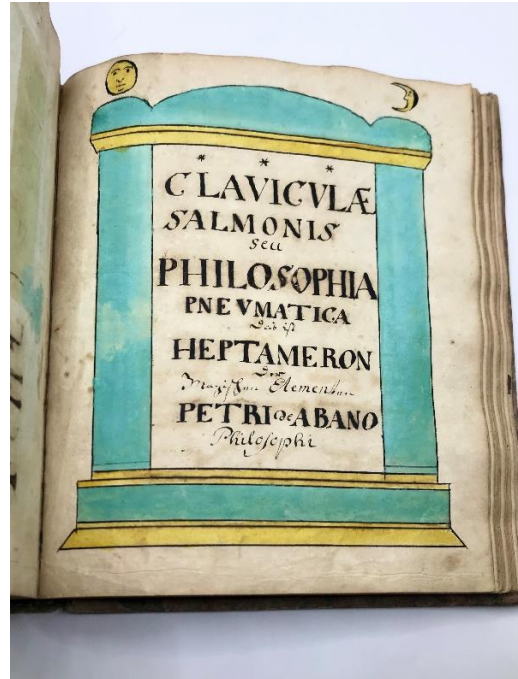 CLAVICVLÆ
SALMONIS
seu
PHILOSOPHIA
PNEVMATICA
das ist
HEPTAMERON
der
Magischen Elementen
PETRI de ABANO
Philosophi